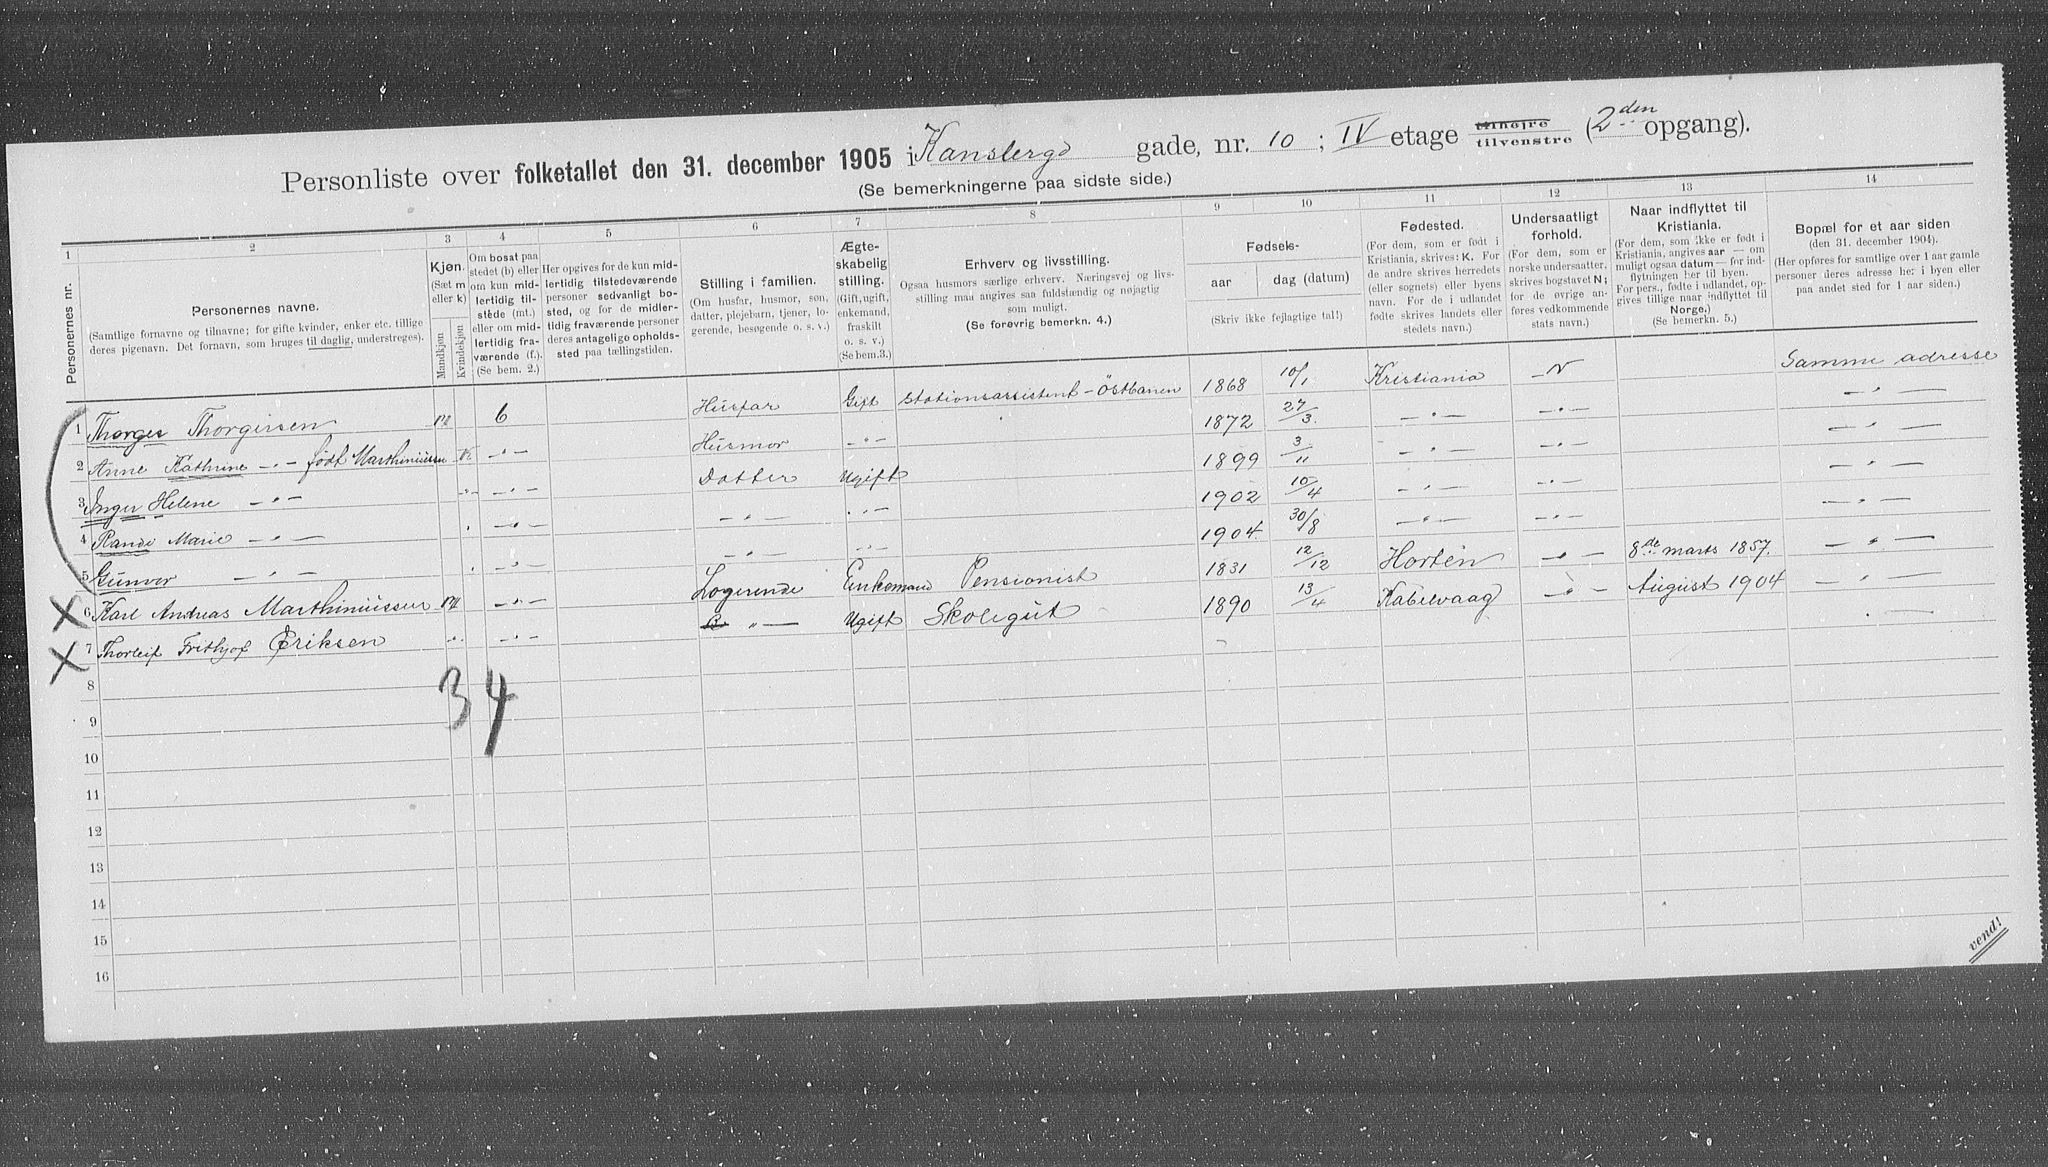 Personliste over folketallet den 31. december 1905 i Kanslergd gade, nr. 10 ; IV etage tilhøjre tilvenstre (2den opgang).
(Se bemerkningerne paa sidste side.)
1 2 3 4 5 6 7 8 9 10 11 12 13 14
Personernes nr.
Personernes navne.
(Samtlige fornavne og tilnavne; for gifte kvinder, enker etc. tillige
deres pigenavn. Det fornavn, som bruges til daglig, understreges).
Kjøn.
(Sæt m
eller k)
Mandkjøn
Kvindekjøn
Om bosat paa
stedet (b) eller
om kun mid-
lertidig til-
stede (mt.)
eller om mid-
lertidig fra-
værende (f.).
(Se bem. 2.)
Her opgives for de kun mid-
lertidig tilstedeværende
personer sedvanligt bo-
sted, og for de midler-
tidig fraværende personer
deres antagelige opholds-
sted paa tællingstiden.
Stilling i familien.
(Om husfar, husmor, søn,
datter, plejebarn, tjener, lo-
gerende, besøgende o. s. v.)
Ægte-
skabelig
stilling.
(Gift, ugift,
enkemand,
fraskilt
o. s. v.)
(Se bem.3.)
Erhverv og livsstilling.
Ogsaa husmors særlige erhverv. Næringsvej og livs-
stilling maa angives saa fuldstændig og nøjagtig
som muligt.
(Se forøvrig bemerkn. 4.)
Fødsels-
aar
dag (datum)
(Skriv ikke fejlagtige tal!)
Fødested.
(For dem, som er født i
Kristiania, skrives: K. For
de andre skrives herredets
(eller sognets) eller byens
navn. For de i udlandet
fødte skrives landets eller
stedets navn.)
Undersaatligt
forhold.
(For dem, som er
norske undersaatter,
skrives bogstavet N;
for de øvrige an-
føres vedkommende
stats navn.)
Naar indflyttet til
Kristiania.
(For dem, som ikke er født i
Kristiania, angives aar — om
muligt ogsaa datum — for ind-
flytningen her til byen.
For pers., fødte i udlandet, op-
gives tillige naar indflyttet til
Norge.)
(Se bemerkn. 5.)
Bopæl for et aar siden
(den 31. december 1904).
(Her opføres for samtlige over 1 aar gamle
personer deres adresse her i byen eller
paa andet sted for 1 aar siden.)
1 Thorger Thorgersen m b Husfar Gift Stationsassistent - Östbanen 1868 10/1 Kristiania N Samme adresse
2 Anne Kathrine —„— født Marthiniussen k —„— Husmor —„— 1872 27/3 —„— —„— —„—
3 Inger Helene —„— „ —„— Datter Ugift 1899 3/11 —„— —„— —„—
4 Randi Marie —„— „ —„— —„— „ 1902 10/4 —„— —„— —„—
5 Gunvor —„— „ —„— —„— „ 1904 30/8 —„— —„— —„—
X 6 Karl Andreas Marthiniussen m —„— Logerende Enkemand Pensionist 1831 12/12 Horten —„— 8de marts 1857. —„—
X 7 Thorleif Frithjof Eriksen „ —„— —„— Ugift Skolegut 1890 13/4 Kabelvaag —„— August 1904 —„—
3 4
8
9
10
11
12
13
14
15
16
vend!